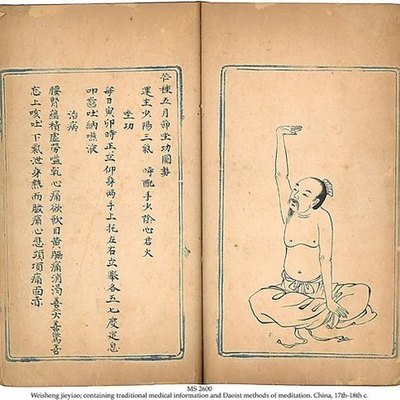 芒種五月節坐功圖勢
運主少陽三氣　時配手少陰心君火
坐功
每日寅卯時正立仰身兩手上托左右立舉各五七度定息
叩齒吐納嚥液
治病
腰腎蘊積虛勞嗌乾心痛欲飲目黃脇痛消渴善笑善驚善
忘上咳吐下氣泄身熱而股痛心悲頭項痛面赤
MS 2600
Weisheng jieyiao; containing traditional medical information and Daoist methods of meditation. China, 17th-18th c.